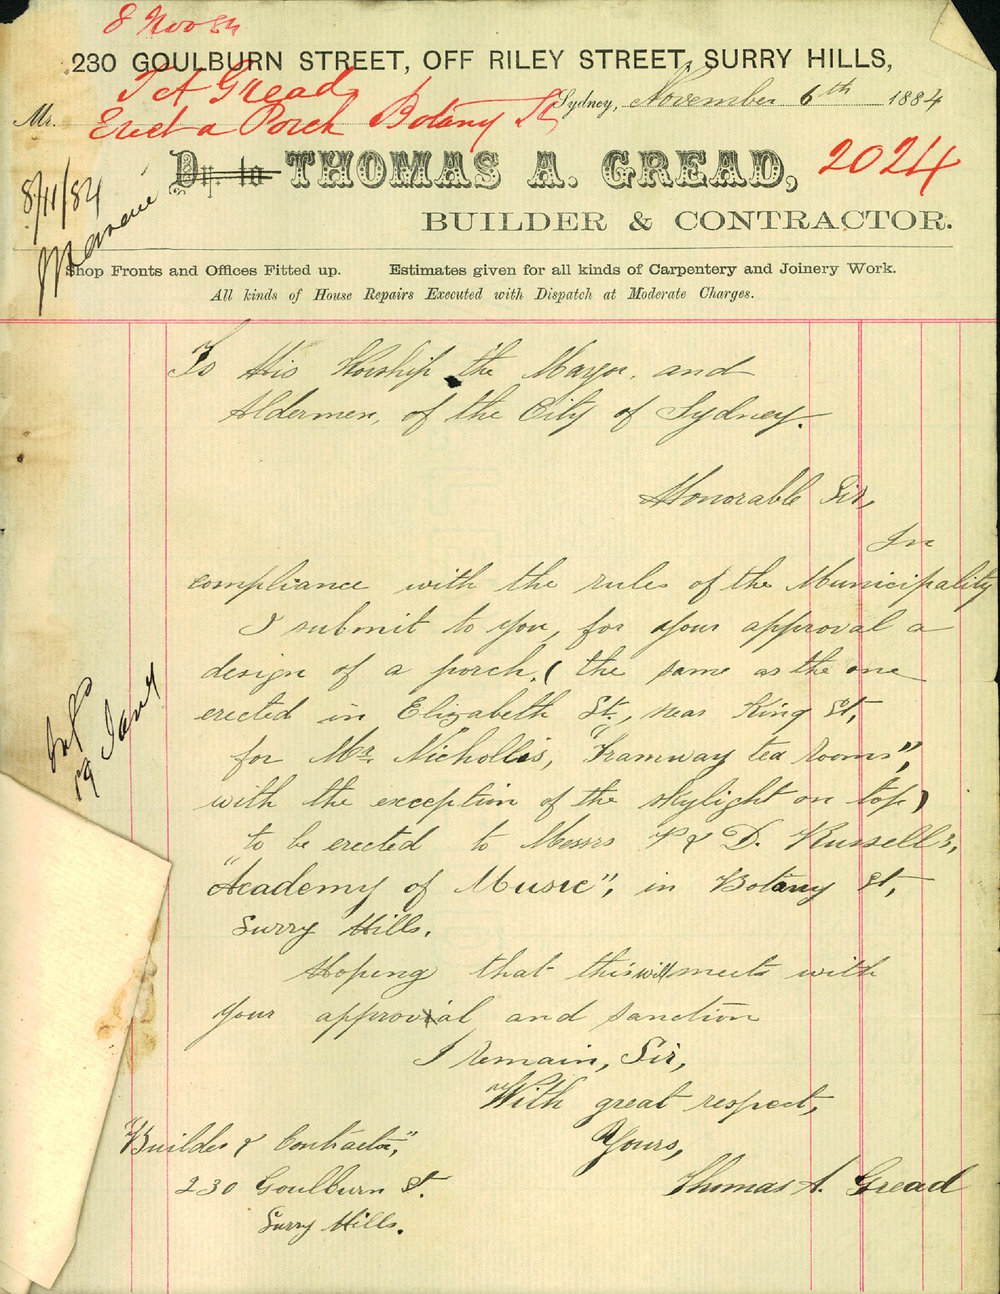 8 Nov 84
230 GOULBURN STREET, OFF RILEY STREET, SURRY HILLS,
T A Gread
Sydney, November 6th 1884
Mr.
Erect a Porch Botany St
Dr. to THOMAS A. GREAD, 2024
8/11/84
BUILDER & CONTRACTOR.
Shop Fronts and Offices Fitted up. Estimates given for all kinds of Carpentery and Joinery Work.
All kinds of House Repairs Executed with Dispatch at Moderate Charges.
To His Worship the Mayor, and
Aldermen, of the City of Sydney.
Honorable Sir,
In
compliance with the rules of the Municipality
I submit to you, for your approval a
design of a porch, (the same as the one
erected in Elizabeth St., near King St,
for Mr. Nichollis, "Tramway tea rooms",
with the exception of the skylight on top)
to be erected to Messrs P & D. Russell's,
"Academy of Music", in Botany St,
Surry Hills.
Hoping that this will meets with
your approvial and sanction
I remain, Sir,
With great respect,
Yours,
"Builder & Contractor",
230 Goulburn St. Thomas A. Gread
Surry Hills.